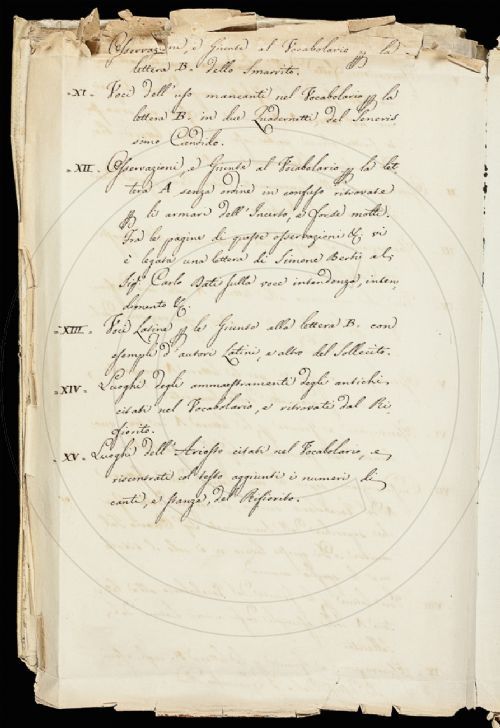 Osservazioni, e Giunte al Vocabolario p la
lettera B. dello Smarrito.
=XI= Voci dell'uso mancanti nel Vocabolario p la
lettera B. in due Quadernetti del Seneris
simo Candido.
=XII= Osservazioni, e Giunte al Vocabolario p la let
tera A senza ordine in confuso ritrovate
p li armari dell'Incerto, e forse molte.
Tra le pagine di queste osservazioni &c. vi
è legata una lettera di Simone Berti al
Sigr. Carlo Dati sulla voce intendenza, inten
dimento &c.
=XIII= Voci Latine p le Giunte alla lettera B. con
esempli d'autori Latini, e altro del Sollecito.
=XIV= Luoghi degli ammaestramenti degli antichi
citati nel Vocabolario, e ritrovati dal Ri
fiorito.
=XV= Luoghi dell'Ariosto citati nel Vocabolario, e
riscontrati col testo aggiunti i numeri di
canti, e stanze, del Rifiorito.